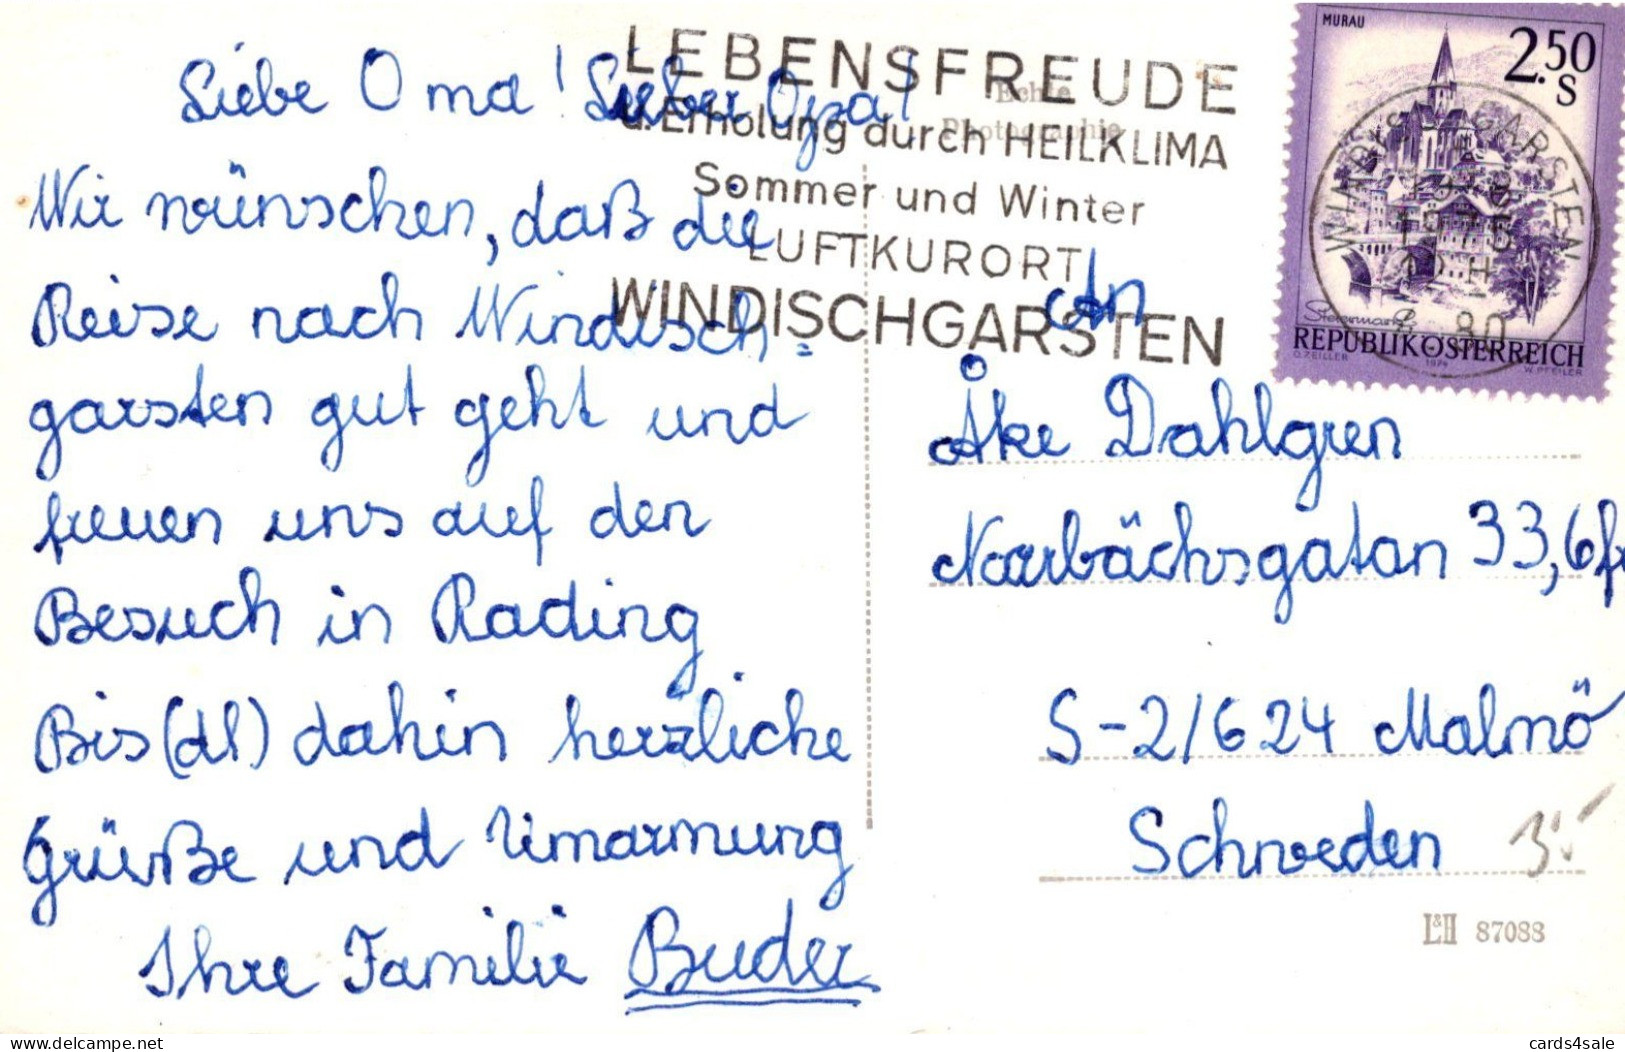 Liebe Oma! Lieber Opa!
Wir wünschen, daß die
Reise nach Windisch=
garsten gut geht und
freuen uns auf den
Besuch in Rading
Bis (dl) dahin herzliche
Grüße und Umarmung
Ihre Familie Buder
LEBENSFREUDE
u. Erholung durch HEILKLIMA
Sommer und Winter
LUFTKURORT
WINDISCHGARSTEN
Echte
Photographie
MURAU
2.50
S
Steiermark
REPUBLIK ÖSTERREICH
O.ZEILLER 1974 W.PFEILER
WINDISCHGARSTEN
80
An
Åke Dahlgren
Norrbächsgatan 33, 6
S-21624 Malmö
Schweden
L&H 87088
delcampe.net
cards4sale